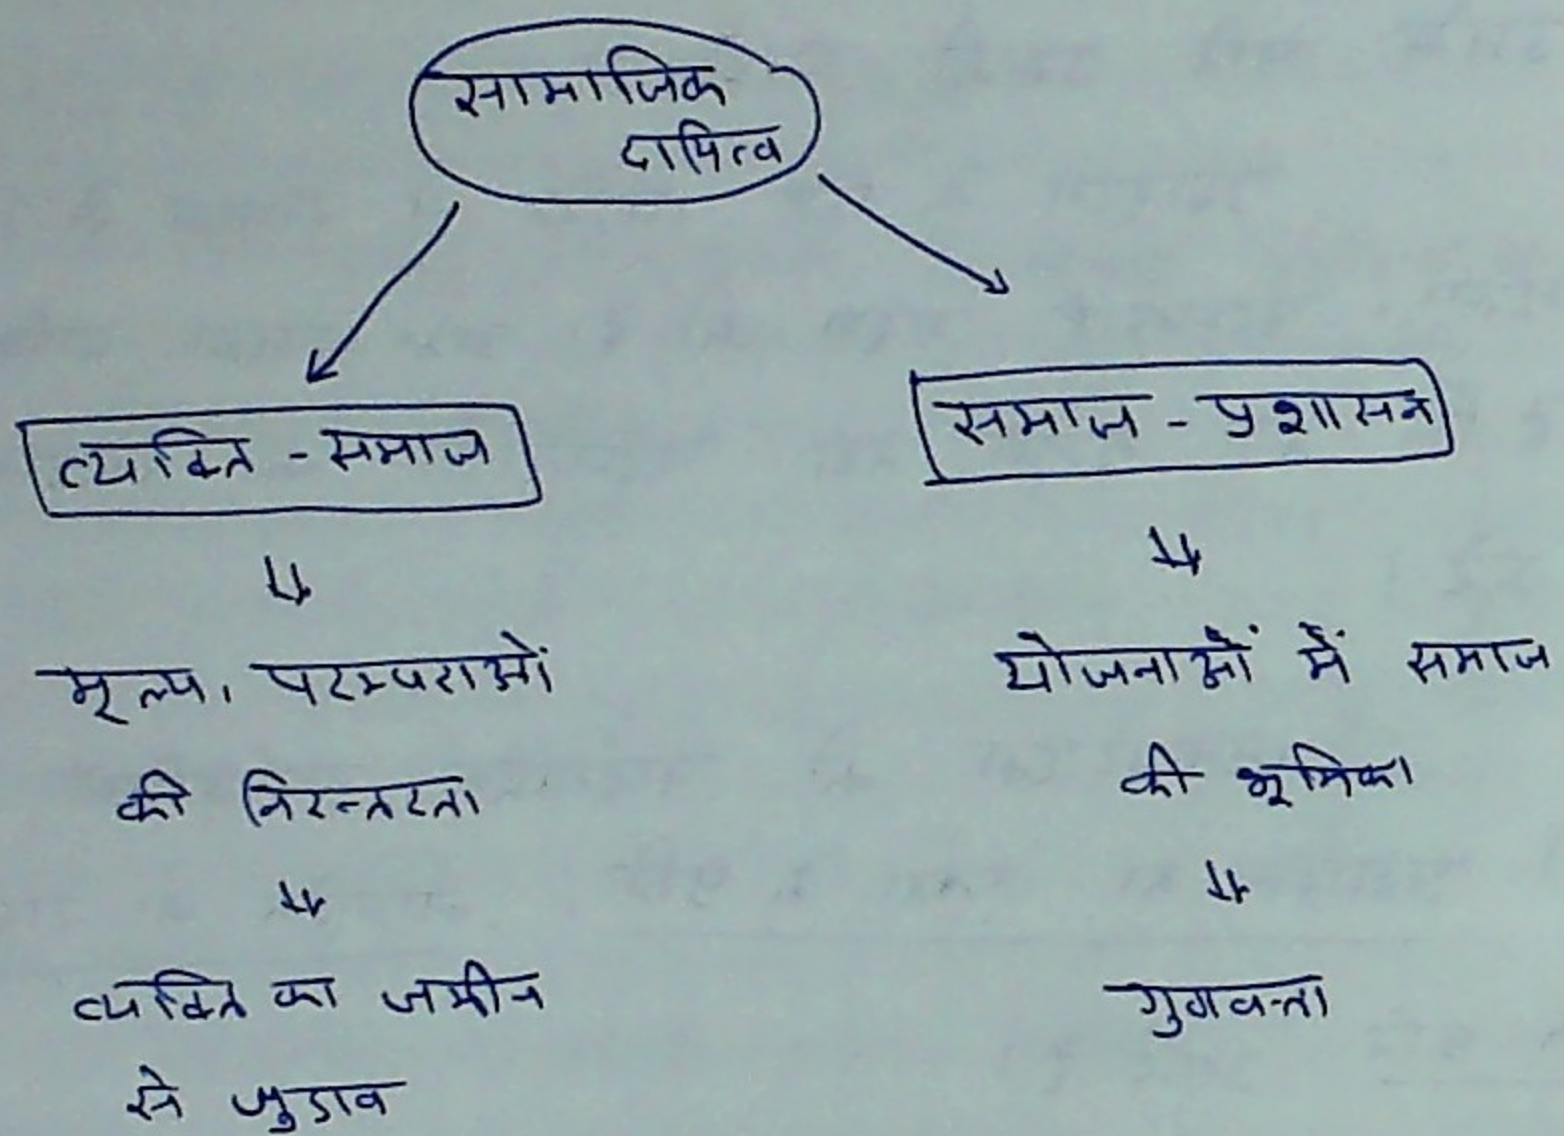 सामाजिक
दायित्व
व्यक्ति - समाज
मूल्य, परम्पराओं
की निरन्तरता
व्यक्ति का जमीन
से जुडाव
समाज - प्रशासन
योजनाओं में समाज
की भूमिका
गुणवत्ता